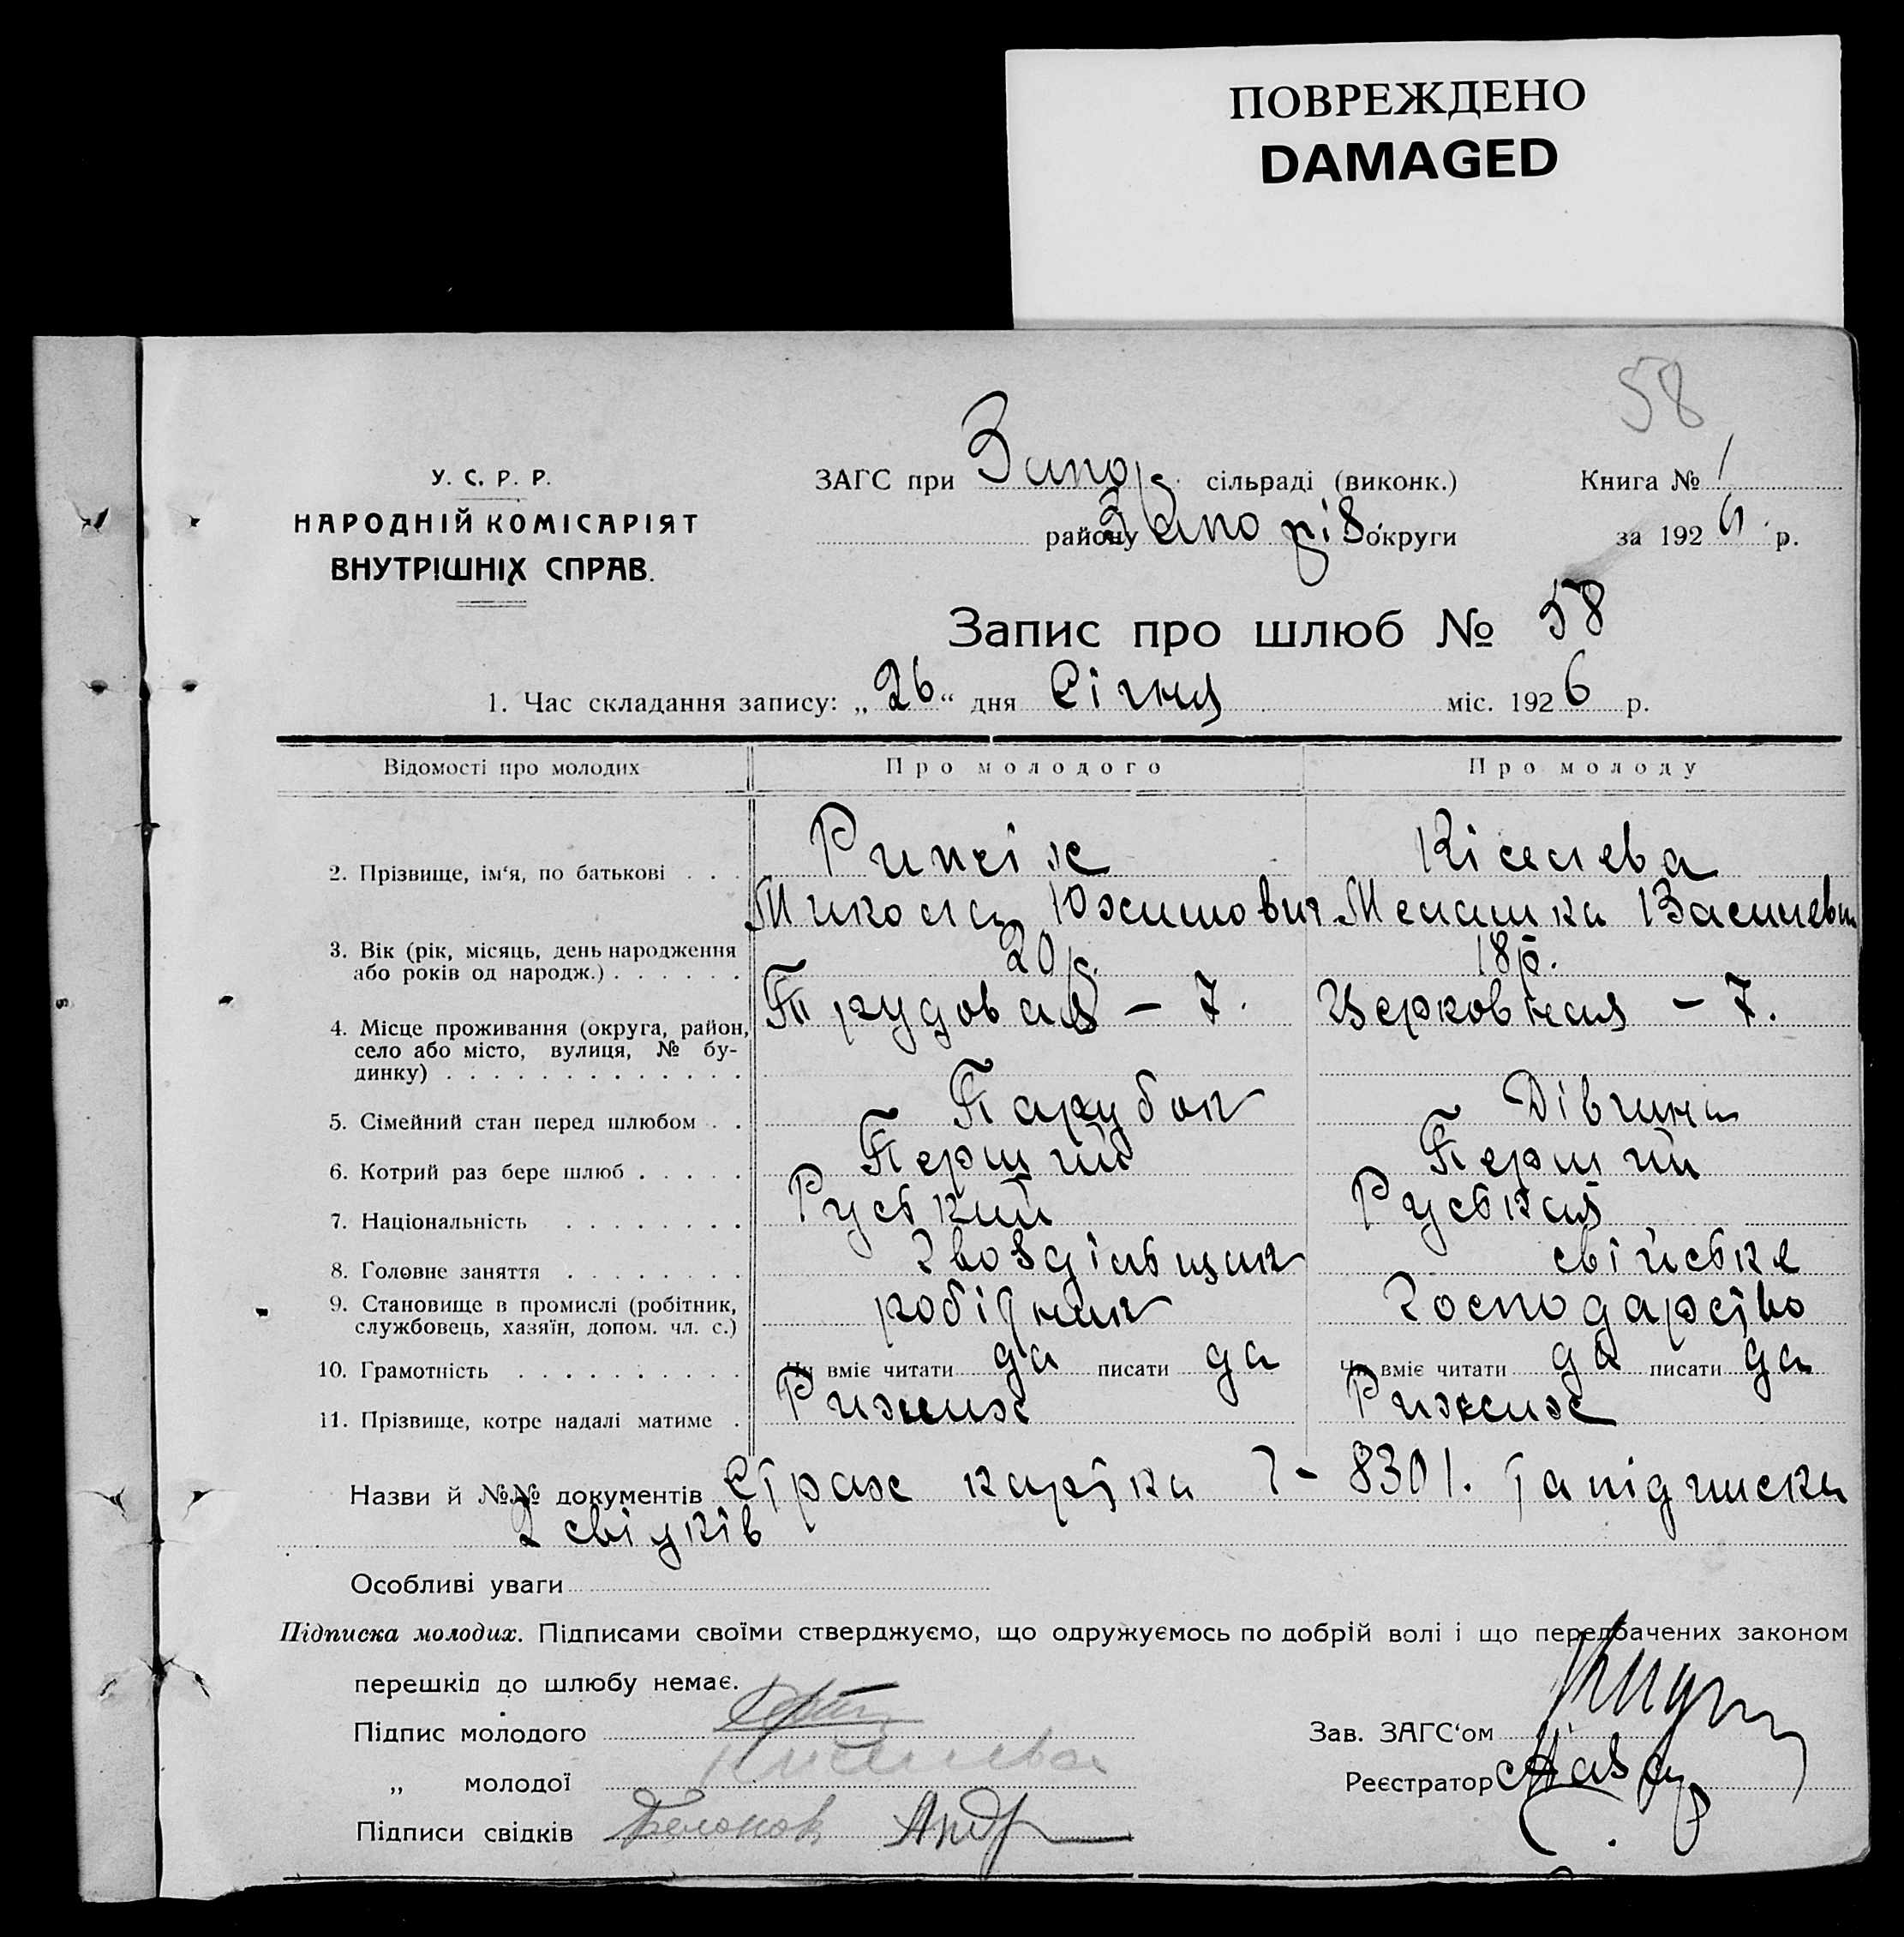 ПОВРЕЖДЕНО
DAMAGED
58
У. С. Р. Р.
НАРОДНІЙ КОМІСАРІЯТ
ВНУТРІШНІХ СПРАВ.
ЗАГС при Запор. сільраді (виконк.)
району Запоріз округи
Книга № 1
за 1926 р.
Запис про шлюб № 58
1. Час складання запису: „26“ дня Січня міс. 1926 р.
Відомості про молодих Про молодого Про молоду
2. Прізвище, ім‘я, по батькові . . . Кісельва
Микола Юхимович Мелашка Васильев
3. Вік (рік, місяць, день народження 20р. 18р.
або років од народж.) . . . . . .
4. Місце проживання (округа, район, Трудовая – 7. Церковная – 7.
село або місто, вулиця, № бу-
динку) . . . . . . . . . . . . .
5. Сімейний стан перед шлюбом . . Парубок Дівчина
6. Котрий раз бере шлюб . . . . . Перший Перший
7. Національність . . . . . . . . Руський Руськая
8. Головне заняття . . . . . . . . Гвоздільщик свійське
9. Становище в промислі (робітник, робідник Господарство
службовець, хазяїн, допом. чл. с.)
10. Грамотність . . . . . . . . . . Чи вміє читати да писати да Чи вміє читати да писати да
11. Прізвище, котре надалі матиме . Рижих Рижих
Назви й №№ документів Страх картка 7 – 8301. та підписка
2 свідків
Особливі уваги
Підписка молодих. Підписами своїми стверджуємо, що одружуємось по добрій волі і що передбачених законом
перешкід до шлюбу немає.
Підпис молодого
Зав. ЗАГС‘ом
„ молодої Киселева
Реєстратор
Підписи свідків